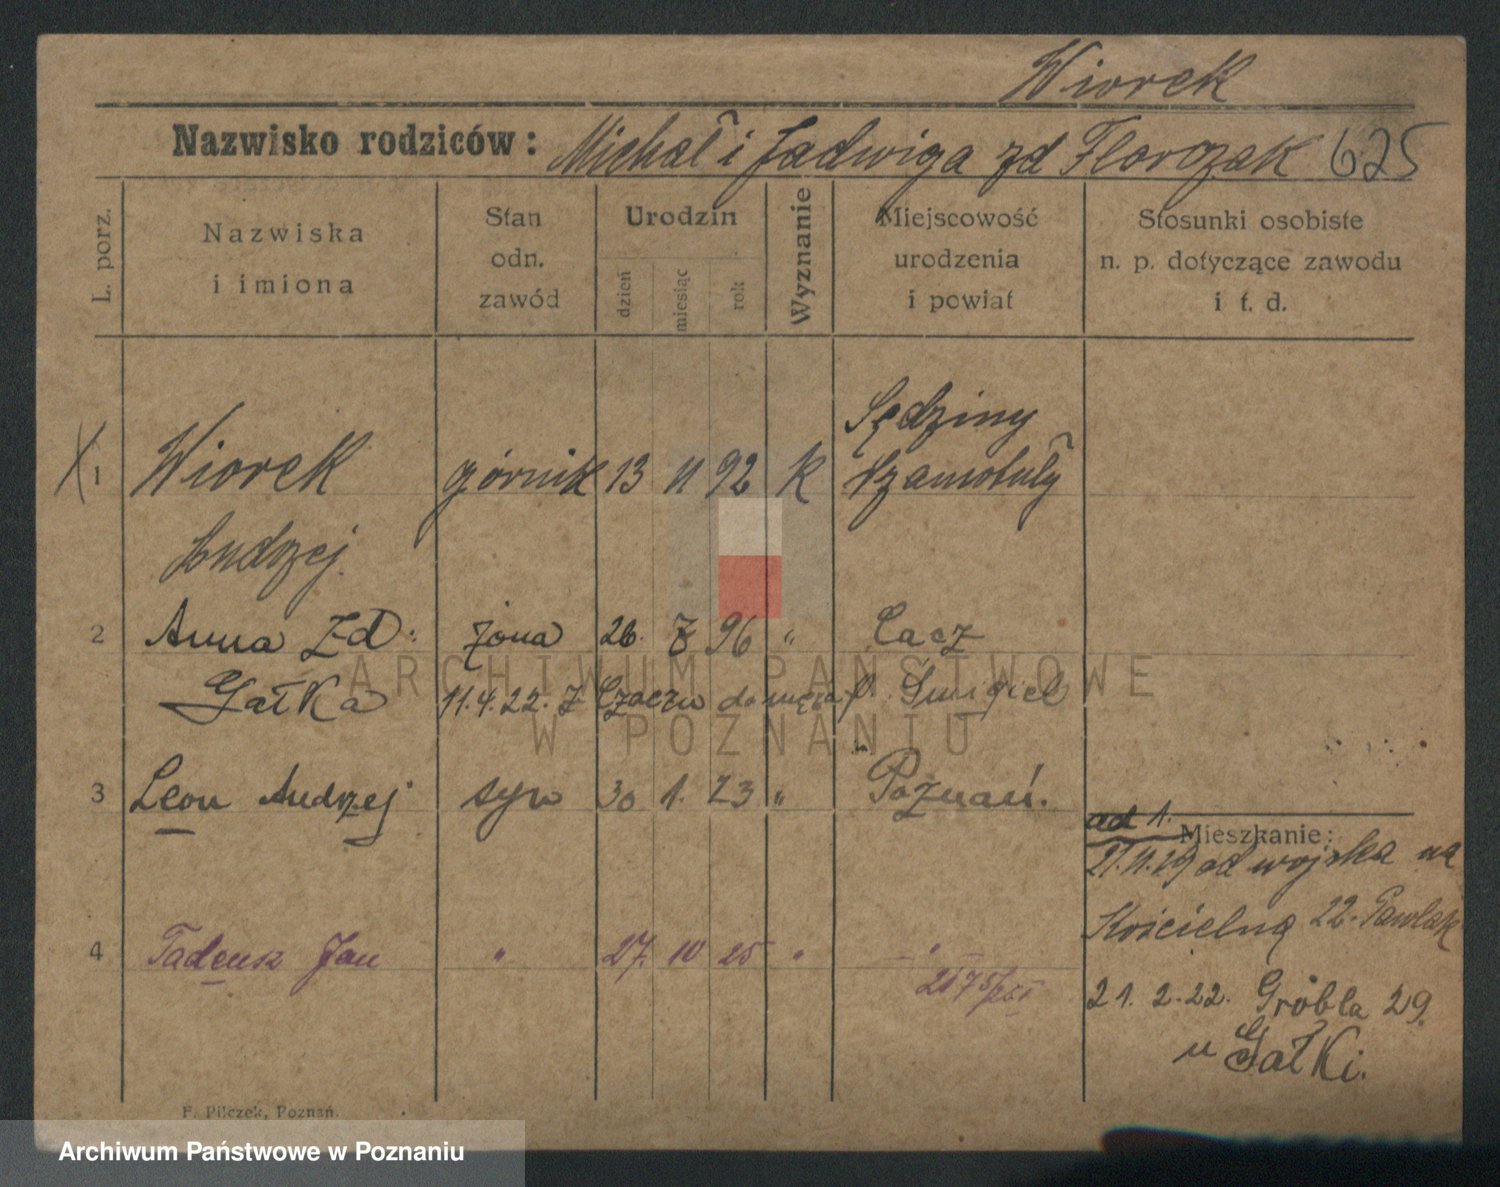 Wiorek
Nazwisko rodziców: Michał i Jadwiga zd Florczak 625
L. porz.
Nazwiska
i imiona
Stan
odn.
zawód
Urodzin
dzień
miesiąc
rok
Wyznanie
Miejscowość
urodzenia
i powiat
Stosunki osobiste
n. p. dotyczące zawodu
i t. d.
Sędziny
1 Wiorek górnik 13 11 92 K Szamotuły
Andrzej.
2 Anna Zd: żona 26. 7 96 " Czacz
Gałka 11.4.22. z Czacza do męża p. Śmigiel
3 Leon Andrzej syn 30 1. 23 " Poznań.
ad 1. Mieszkanie:
21.11.19 od wojska na
Kościelną 22. Pawlak
4 Tadeusz Jan " 27. 10 25 " - " -
21. 2. 22. Grobla 29.
u Gałki.
F. Pilczek, Poznań.
ARCHIWUM PAŃSTWOWE
W POZNANIU
Archiwum Państwowe w Poznaniu